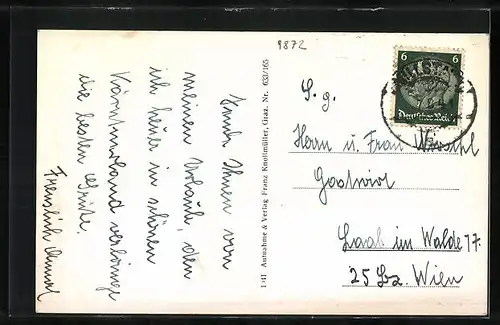 9872
Sende Ihnen von
meinem Urlaub, den
ich heuer in schönen
Kärntnerland verbringe
die besten Grüße.
1941 Aufnahme & Verlag Franz Knollmüller, Graz. Nr. 633/165
6 6
Deutsches Reich
S. g.
Herrn u. Frau
Gastwirt
Laab im Walde 77.
25 Bz. Wien